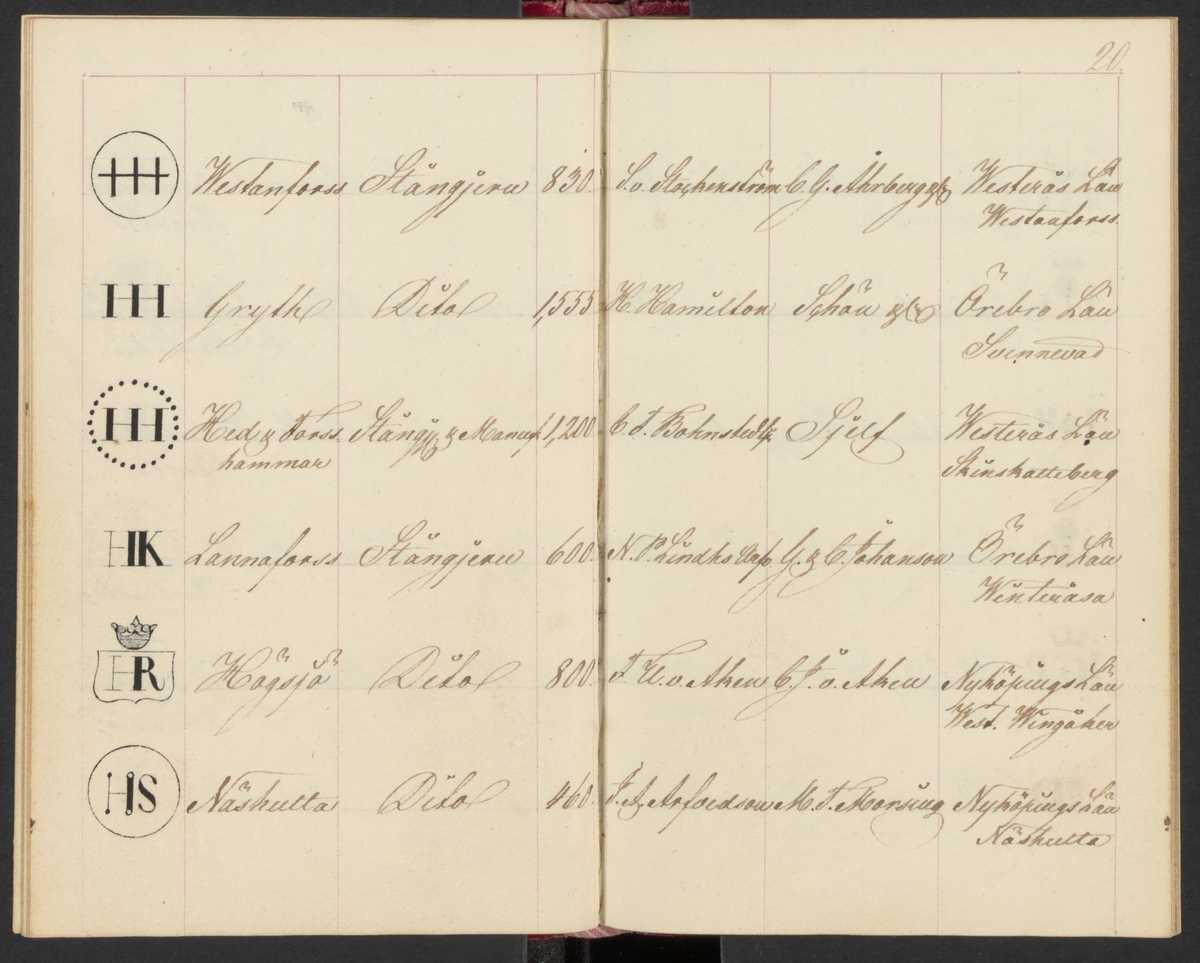 20.
HH Westanforss Stångjern 830. S. v. Stockenström C. G. Åhrberg & Co Westerås Län
Westanforss
HH Gryth Dito 1,555 H. Hamilton Schön & Co Örebro Län
Svennevad
HH Hed & Forss Stångj. & Manuf. 1,200. C. F. Bohnstedt Sjelf Westerås Län
hammar Skinskatteberg
HK Lannaforss Stångjern 600. N. P. Lindhs G. & C. Johanson Örebro Län
Winteråsa
HR Högsjö Dito 800. F. U. v. Aken C. J. v. Aken Nyköpings Län
West. Wingåker
HS Näshulta Dito 460. J. A. Arfvedson M. F. Morsing Nyköpings Län
Näshulta